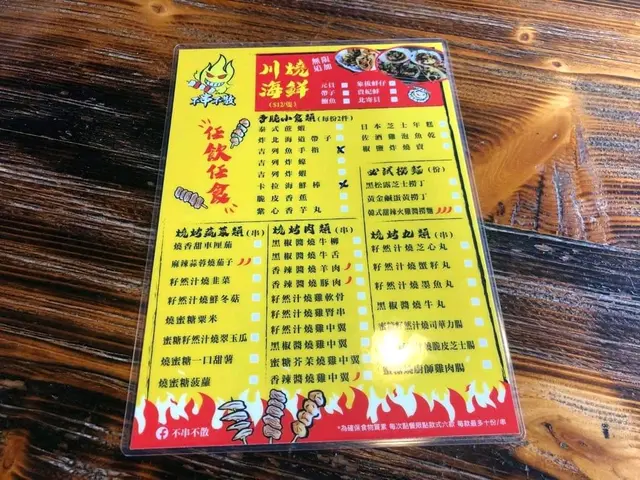 不串不散
任飲任食
川燒
海鮮
($12/隻)
無限
追加
元貝
帶子
鮑魚
貴妃鮮
北寄貝
香脆小食類 (每份2件)
泰式蔗蝦
炸北海道帶子
吉列魚手指
吉列炸蠔
吉列炸蝦
卡拉海鮮棒
脆皮香蕉
紫心香芋丸
日本芝士年糕
佐酒雞泡魚乾
椒鹽炸燒賣
必試撈麵 (份)
黑松露芝士撈丁
黃金鹹蛋黃撈丁
韓式甜辣火雞醬撈麵
燒烤蔬菜類 (串)
燒香甜車厘茄
麻辣蒜蓉燒茄子
籽然汁燒韭菜
籽然汁燒鮮冬菇
燒蜜糖粟米
蜜糖籽然汁燒翠玉瓜
燒蜜糖一口甜薯
燒蜜糖菠蘿
燒烤肉類 (串)
黑椒醬燒牛柳
黑椒醬燒牛舌
香辣醬燒羊肉
香辣醬燒豚肉
籽然汁燒雞軟骨
籽然汁燒雞腎串
籽然汁燒雞中翼
黑椒醬燒雞中翼
蜜糖芥茉燒雞中翼
香辣醬燒雞中翼
燒烤丸類 (串)
籽然汁燒芝心丸
籽然汁燒蟹籽丸
籽然汁燒墨魚丸
黑椒醬燒牛丸
籽然汁燒司華力腸
燒脆皮芝士腸
燒廚師雞肉腸
不串不散
*為確保食物質素 每次點餐限點款式六款 每款最多十份/串